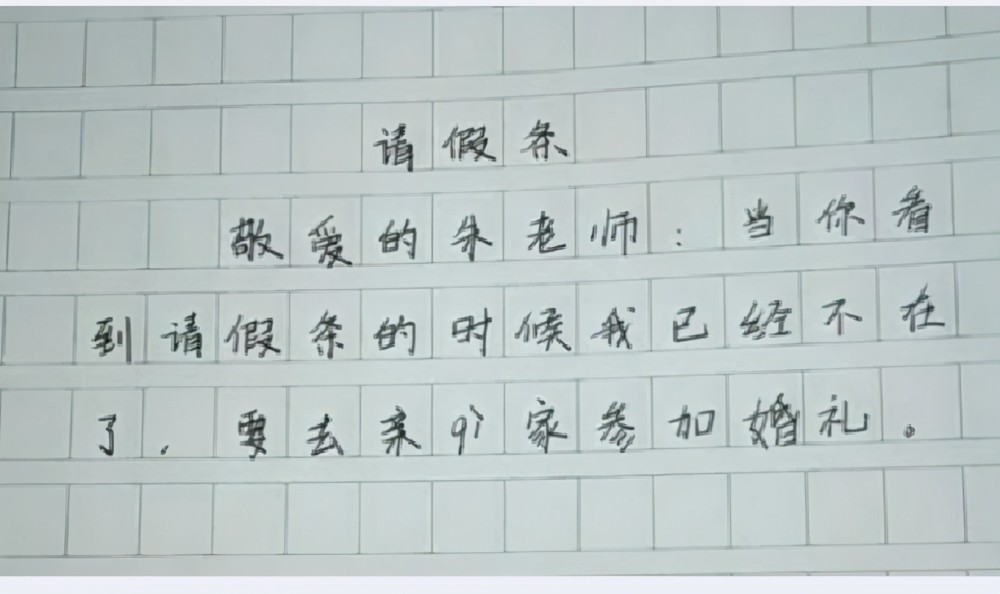 请假条
敬爱的朱老师：当你看
到请假条的时候我已经不在
了，要去亲qi家参加婚礼。